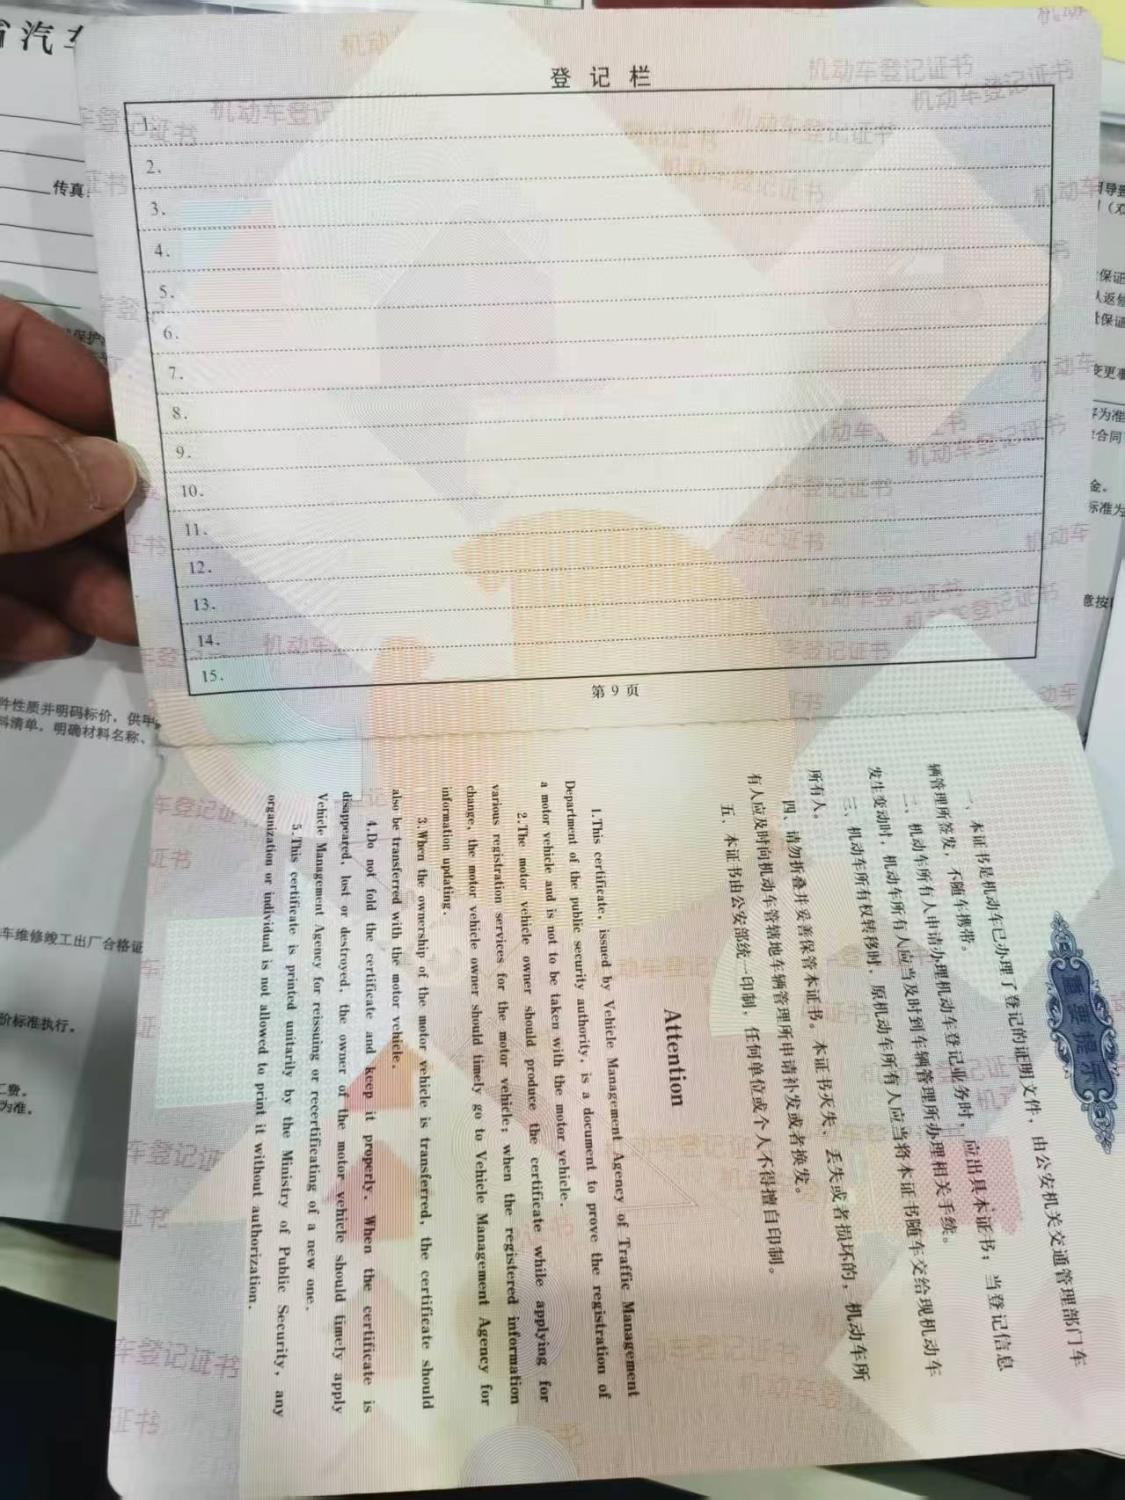 登记栏
1.
2.
3.
4.
5.
6.
7.
8.
9.
10.
11.
12.
13.
14.
15.
第9页
重要提示
一、本证书是机动车已办理了登记的证明文件，由公安机关交通管理部门车
辆管理所签发，不随车携带。
二、机动车所有人申请办理机动车登记业务时，应出具本证书；当登记信息
发生变动时，机动车所有人应当及时到车辆管理所办理相关手续。
三、机动车所有权转移时，原机动车所有人应当将本证书随车交给现机动车
所有人。
四、请勿折叠并妥善保管本证书。本证书灭失、丢失或者损坏的，机动车所
有人应及时向机动车管辖地车辆管理所申请补发或者换发。
五、本证书由公安部统一印制，任何单位或个人不得擅自印制。
Attention
1.This certificate, issued by Vehicle Management Agency of Traffic Management
Department of the public security authority, is a document to prove the registration of
a motor vehicle and is not to be taken with the motor vehicle.
2.The motor vehicle owner should produce the certificate while applying for
various registration services for the motor vehicle; when the registered information
change, the motor vehicle owner should timely go to Vehicle Management Agency for
information updating.
3.When the ownership of the motor vehicle is transferred, the certificate should
also be transferred with the motor vehicle.
4.Do not fold the certificate and keep it properly. When the certificate is
disappeared, lost or destroyed, the owner of the motor vehicle should timely apply
Vehicle Management Agency for reissuing or recertificating of a new one.
5.This certificate is printed unitarily by the Ministry of Public Security, any
organization or individual is not allowed to print it without authorization.
机动车登记证书
省汽车
传真：
件性质并明码标价，供
料清单，明确材料名称、
车维修竣工出厂合格证
价标准执行。
工费。
为准。